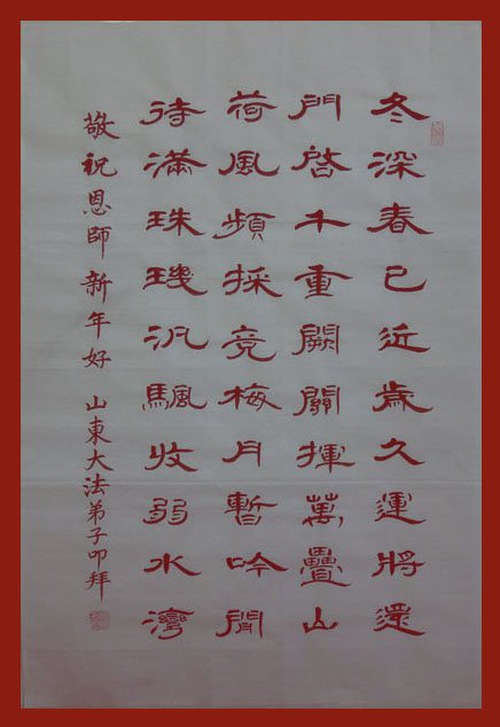 冬深春已近歲久運將還
門啓千重闕關揮萬疊山
荷風頻採竟梅月暫吟閒
待滿珠璣汎颿收弱水灣
敬祝恩師新年好 山東大法弟子叩拜